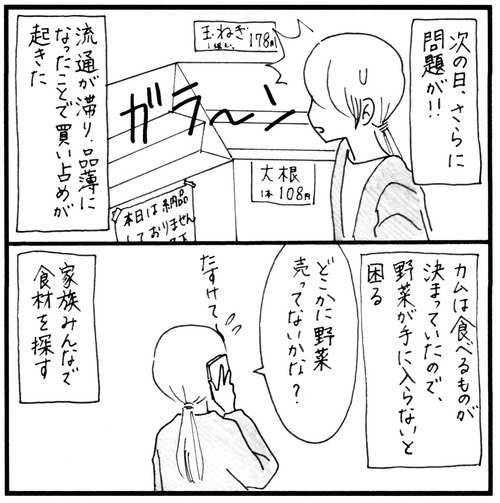 次の日、さらに
問題が!!
玉ねぎ
178円
ガラ〜ン
大根
1本108円
本日は納品
しておりません
流通が滞り、品薄に
なったことで買い占めが
起きた
カムは食べるものが
決まっていたので、
野菜が手に入らないと
困る
どこかに野菜
売ってないかな?
たすけて
家族みんなで
食材を探す